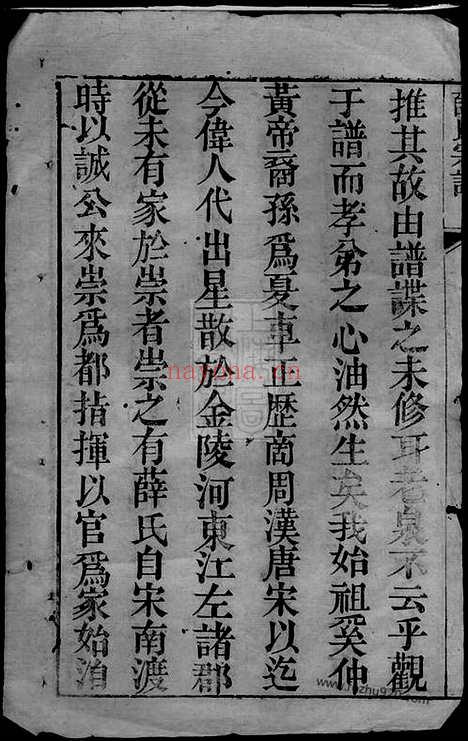 推其故由譜諜之未修耳老泉不云乎觀
于譜而孝弟之心油然生矣我始祖奚仲
黃帝裔孫爲夏車正歷商周漢唐宋以迄
今偉人代出星散於金陵河東江左諸郡
從未有家於崇者崇之有薛氏自宋南渡
時以誠公來崇爲都指揮以官爲家始洎
nayona.cn